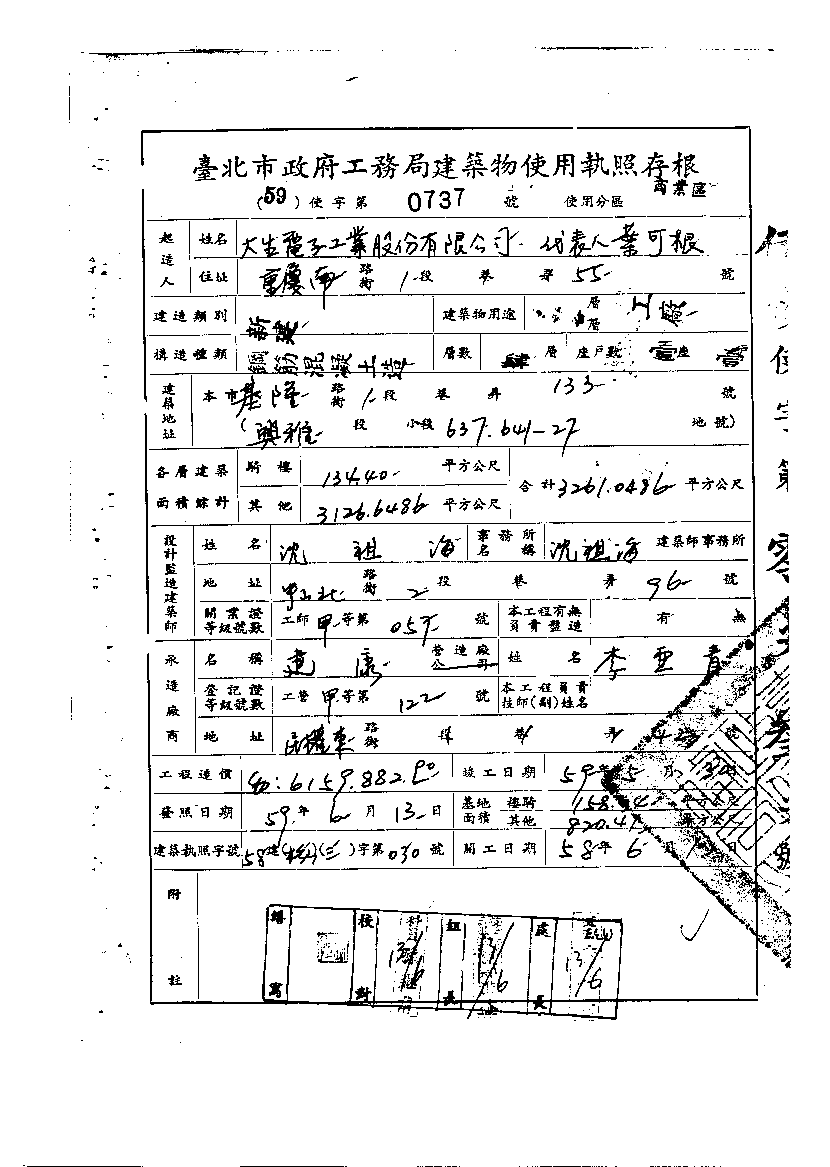 臺北市政府工務局建築物使用執照存根
(59)使字第 0737 號 使用分區 商業區
起造人 姓名 大生電子工業股份有限公司 代表人葉可根
住址 重慶南 路街 1 段 巷 弄 55 號
建造類別 新建 建築物用途 層層 工廠
構造種類 鋼筋混凝土造 層數 肆 層 座戶數 壹座 壹
建築地址 本市基隆 路街 1 段 巷 弄 133 號
(興雅 段 小段 637.641-27 地號)
各層建築面積餘計 騎樓 134.40 平方公尺 合計 3261.0486 平方公尺
其他 3126.6486 平方公尺
設計監造建築師 姓名 沈祖海 事務所名稱 沈祖海 建築師事務所
地址 中山北 路街 2 段 巷 弄 96 號
開業證等級號數 工師 甲 等第 057 號 本工程有無負責監造 有 無
承造廠商 名稱 建康 營造廠公司 姓名 李
登記證等級號數 工營 甲 等第 122 號 本工程負責技師(副)姓名
地址 民權東 路街 段 巷 弄 號
工程造價 6159.882.00 竣工日期 59年5月 日
發照日期 59年6月13日 基地面積 樓騎 158. 平方公尺
其他 820.4 平方公尺
建築執照字號 58建( )( )字第030號 開工日期 58年6月 日
附註
繕寫 校對 13/6 組長 13/6 處長 13/6
使字第零